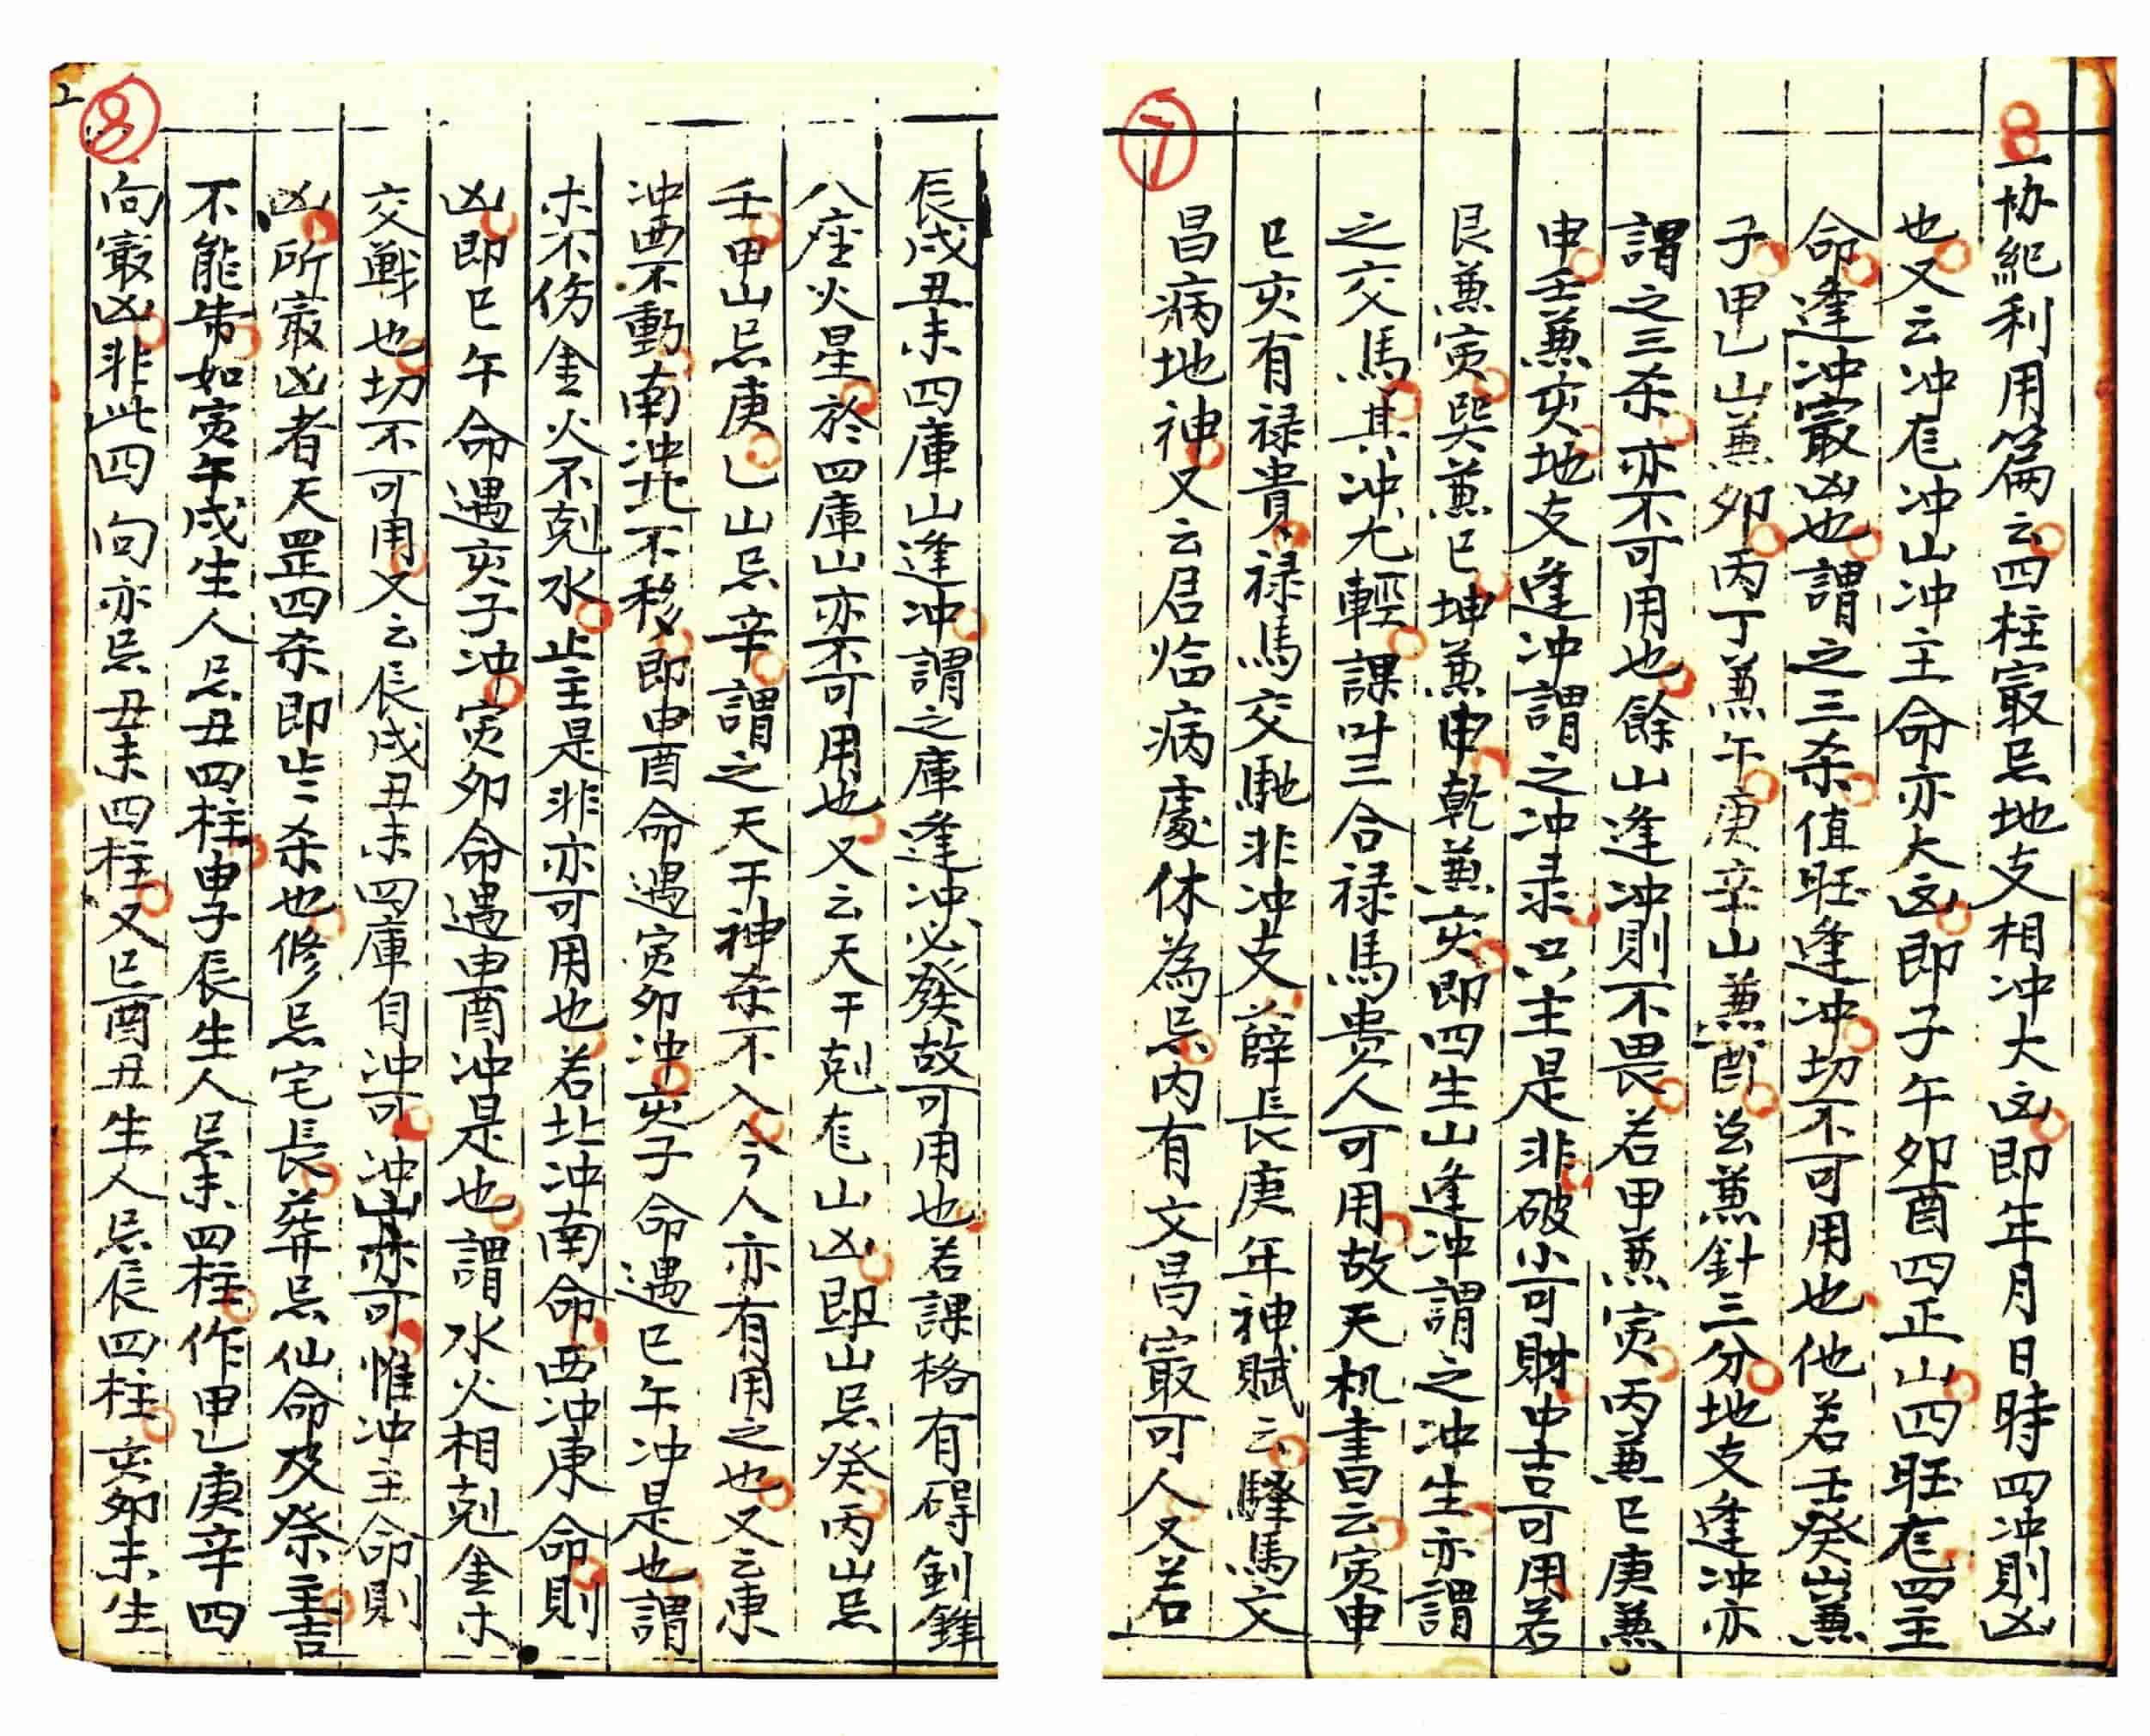 ⑦
一协紀利用篇云四柱㝡忌地支相冲大凶即年月日時四冲則凶
也又云冲龙冲山冲主命亦大凶即子午卯酉四正山四旺龙四主
命逢冲㝡凶也謂之三杀值旺逢冲切不可用也他若壬癸山兼
子甲乙山兼卯丙丁兼午庚辛山兼酉兹兼針三分地支逢冲亦
謂之三杀亦不可用也餘山逢冲則不畏若甲兼寅丙兼巳庚兼
申壬兼亥地支逢冲謂之冲录只主是非破小可財中吉可用若
艮兼寅巽兼巳坤兼申乾兼亥即四生山逢冲謂之冲生亦謂
之交馬其冲尤輕課叶三合禄馬贵人可用故天机書云寅申
巳亥有禄貴禄馬交馳非冲支薛長庚年神賦云驛馬文
昌病地神又云居临病處休為忌内有文昌㝡可人又若
⑧
辰戌丑未四庫山逢冲謂之庫逢冲必發故可用也若課格有碍剑鋒
八座火星於四庫山亦不可用也又云天干剋龙山凶即山忌癸丙山忌
壬甲山忌庚乙山忌辛謂之天干神杀不入今人亦有用之也又云東
冲西不動南冲北不移即申酉命遇寅卯冲亥子命遇巳午冲是也謂
木不伤金火不剋水止主是非亦可用也若北冲南命西冲東命則
凶即巳午命遇亥子冲寅卯命遇申酉冲是也謂水火相剋金木
交戰也切不可用又云辰戌丑未四庫自冲可冲山亦可惟冲主命則
凶所㝡凶者天罡四杀即歨杀也修忌宅長葬忌仙命及祭主吉
不能制如寅午戌生人忌丑四柱申子辰生人忌未四柱作甲乙庚辛四
向㝡凶非此四向亦忌丑未四柱又巳酉丑生人忌辰四柱亥卯未生